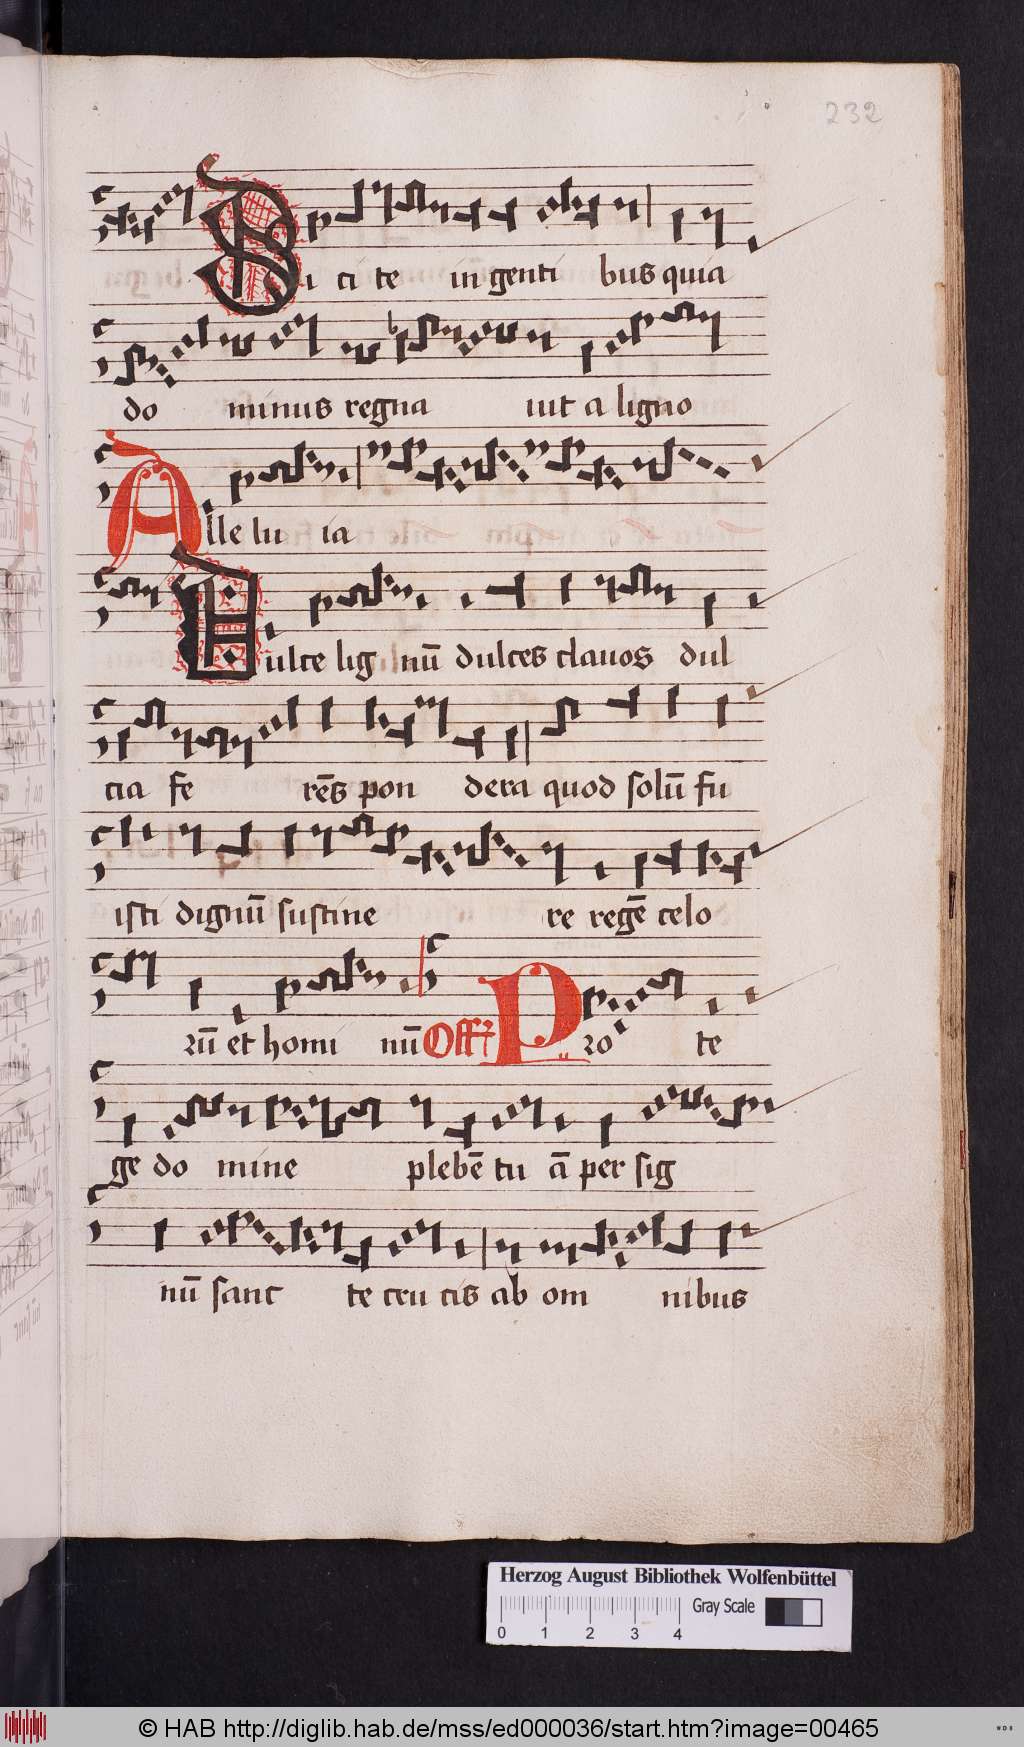 232
Di ci te in genti bus quia
do minus regna uit a ligno
Alle lu ia
Dulce lig nū dulces clauos dul
cia fe rēs pon dera quod solū fu
isti dignū sustine re regē celo
rū et homi nū Off Pro te
ge do mine plebē tu ā per sig
nū sanc te cru cis ab om nibus
Herzog August Bibliothek Wolfenbüttel
Gray Scale
0 1 2 3 4
© HAB http://diglib.hab.de/mss/ed000036/start.htm?image=00465